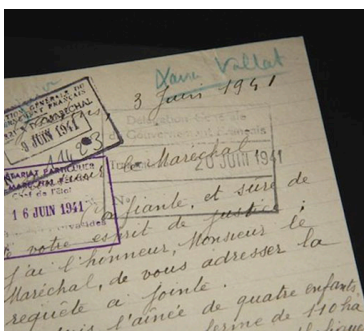 Xavier Vallat
3 Juin 1941
DU MARECHAL
9 JUIN 1941
Délégation Générale
du Gouvernement Français
20 JUIN 1941
le Maréchal
PARTICULIER
MARECHAL
Chef de l'Etat
16 JUIN 1941
confiante, et sure de
votre esprit de justice,
j'ai l'honneur, Monsieur le
Maréchal, de vous adresser la
requête ci jointe.
l'aînée de quatre enfants
ferme de 110 ha